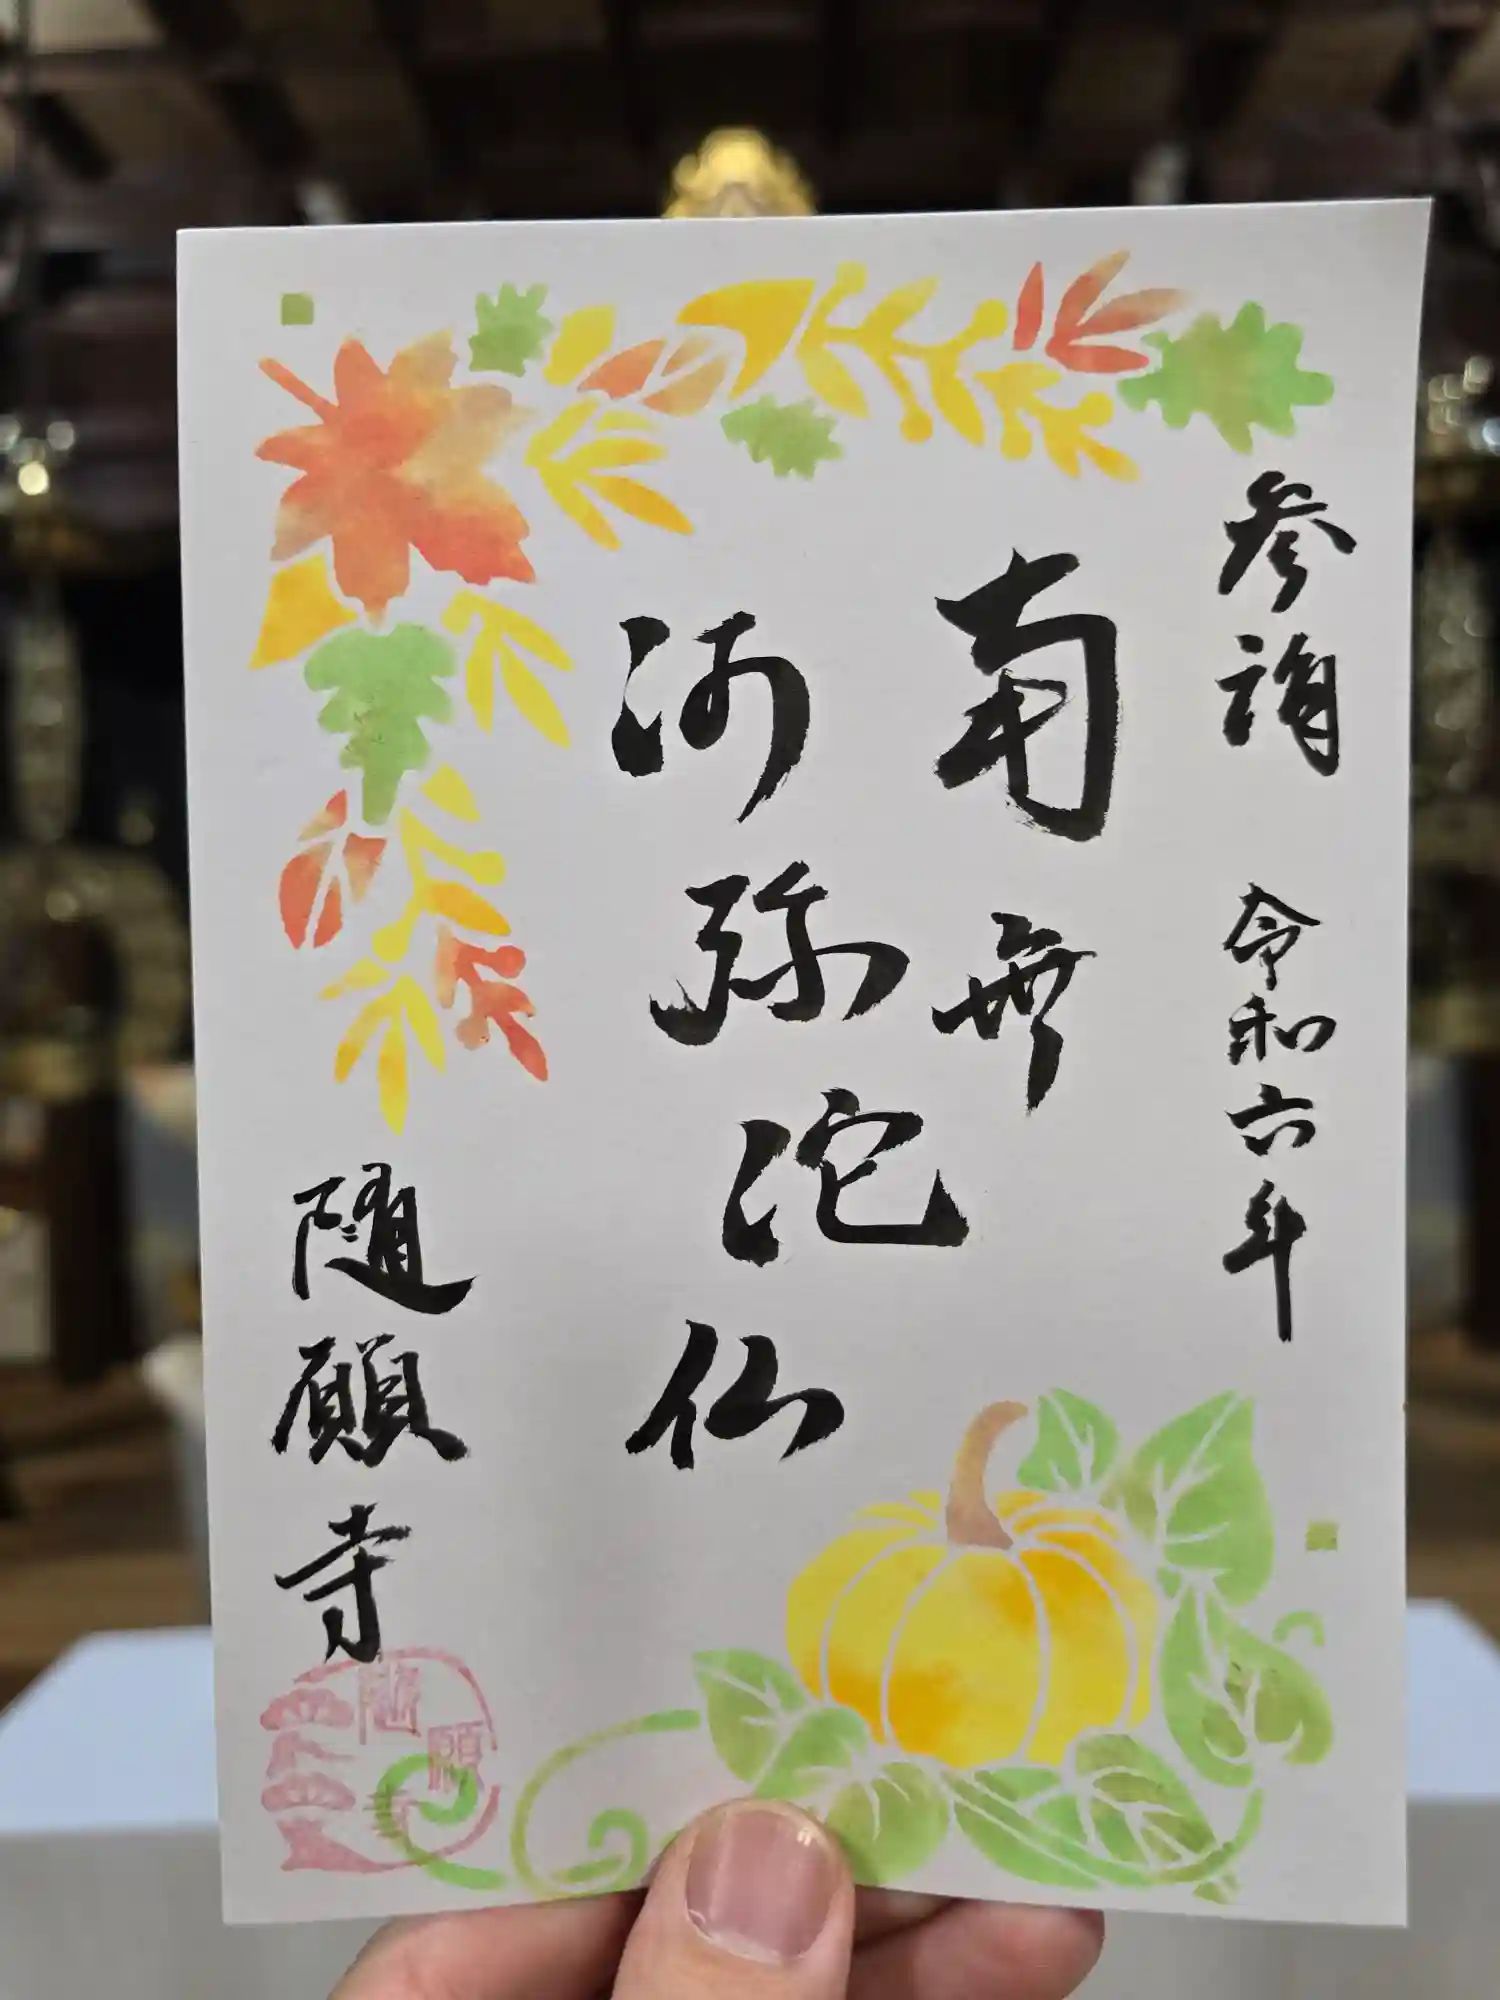 参詣 令和六年
南無
阿弥陀仏
随願寺
随願寺